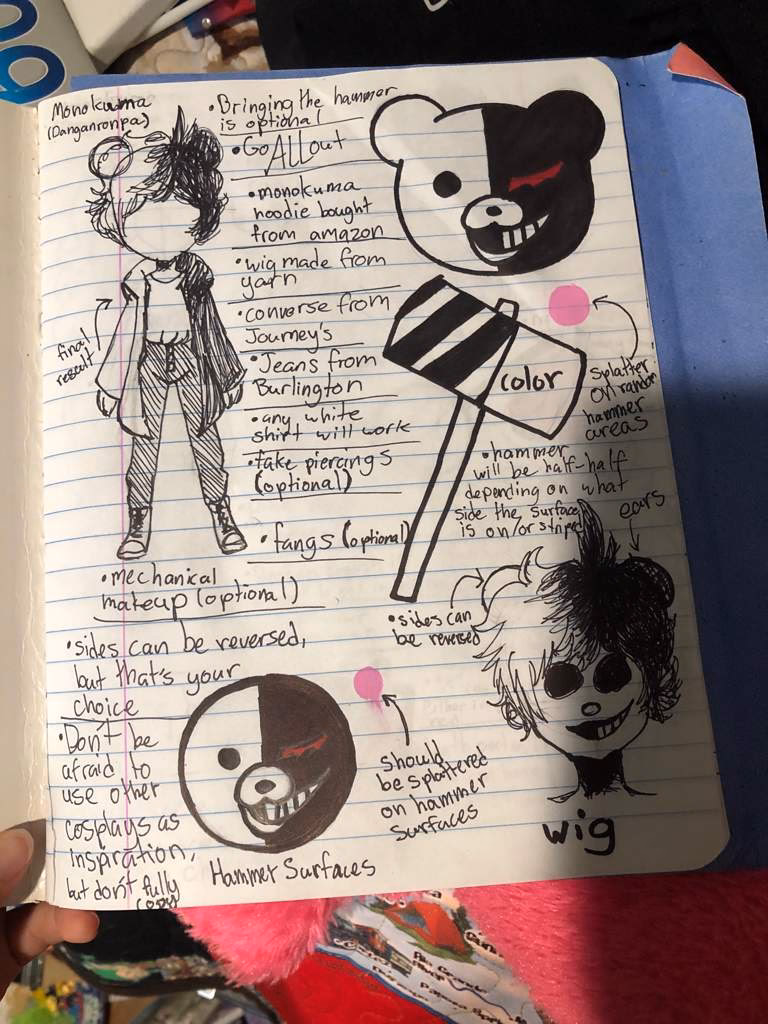 Monokuma
(Danganronpa)
• Bringing the hammer
is optional
• Go ALL out
• monokuma
hoodie bought
from amazon
• wig made from
yarn
• converse from
Journey's
• Jeans from
Burlington
• any white
shirt will work
• fake piercings
(optional)
• fangs (optional)
• mechanical
makeup (optional)
• sides can be reversed,
but that's your
choice
• Don't be
afraid to
use other
cosplays as
inspiration,
but don't fully
copy
final
result
color
splatter
on random
hammer
areas
• hammer
will be half-half
depending on what
side the surface
is on/or striped
ears
• sides can
be reversed
wig
should
be splattered
on hammer
surfaces
Hammer Surfaces